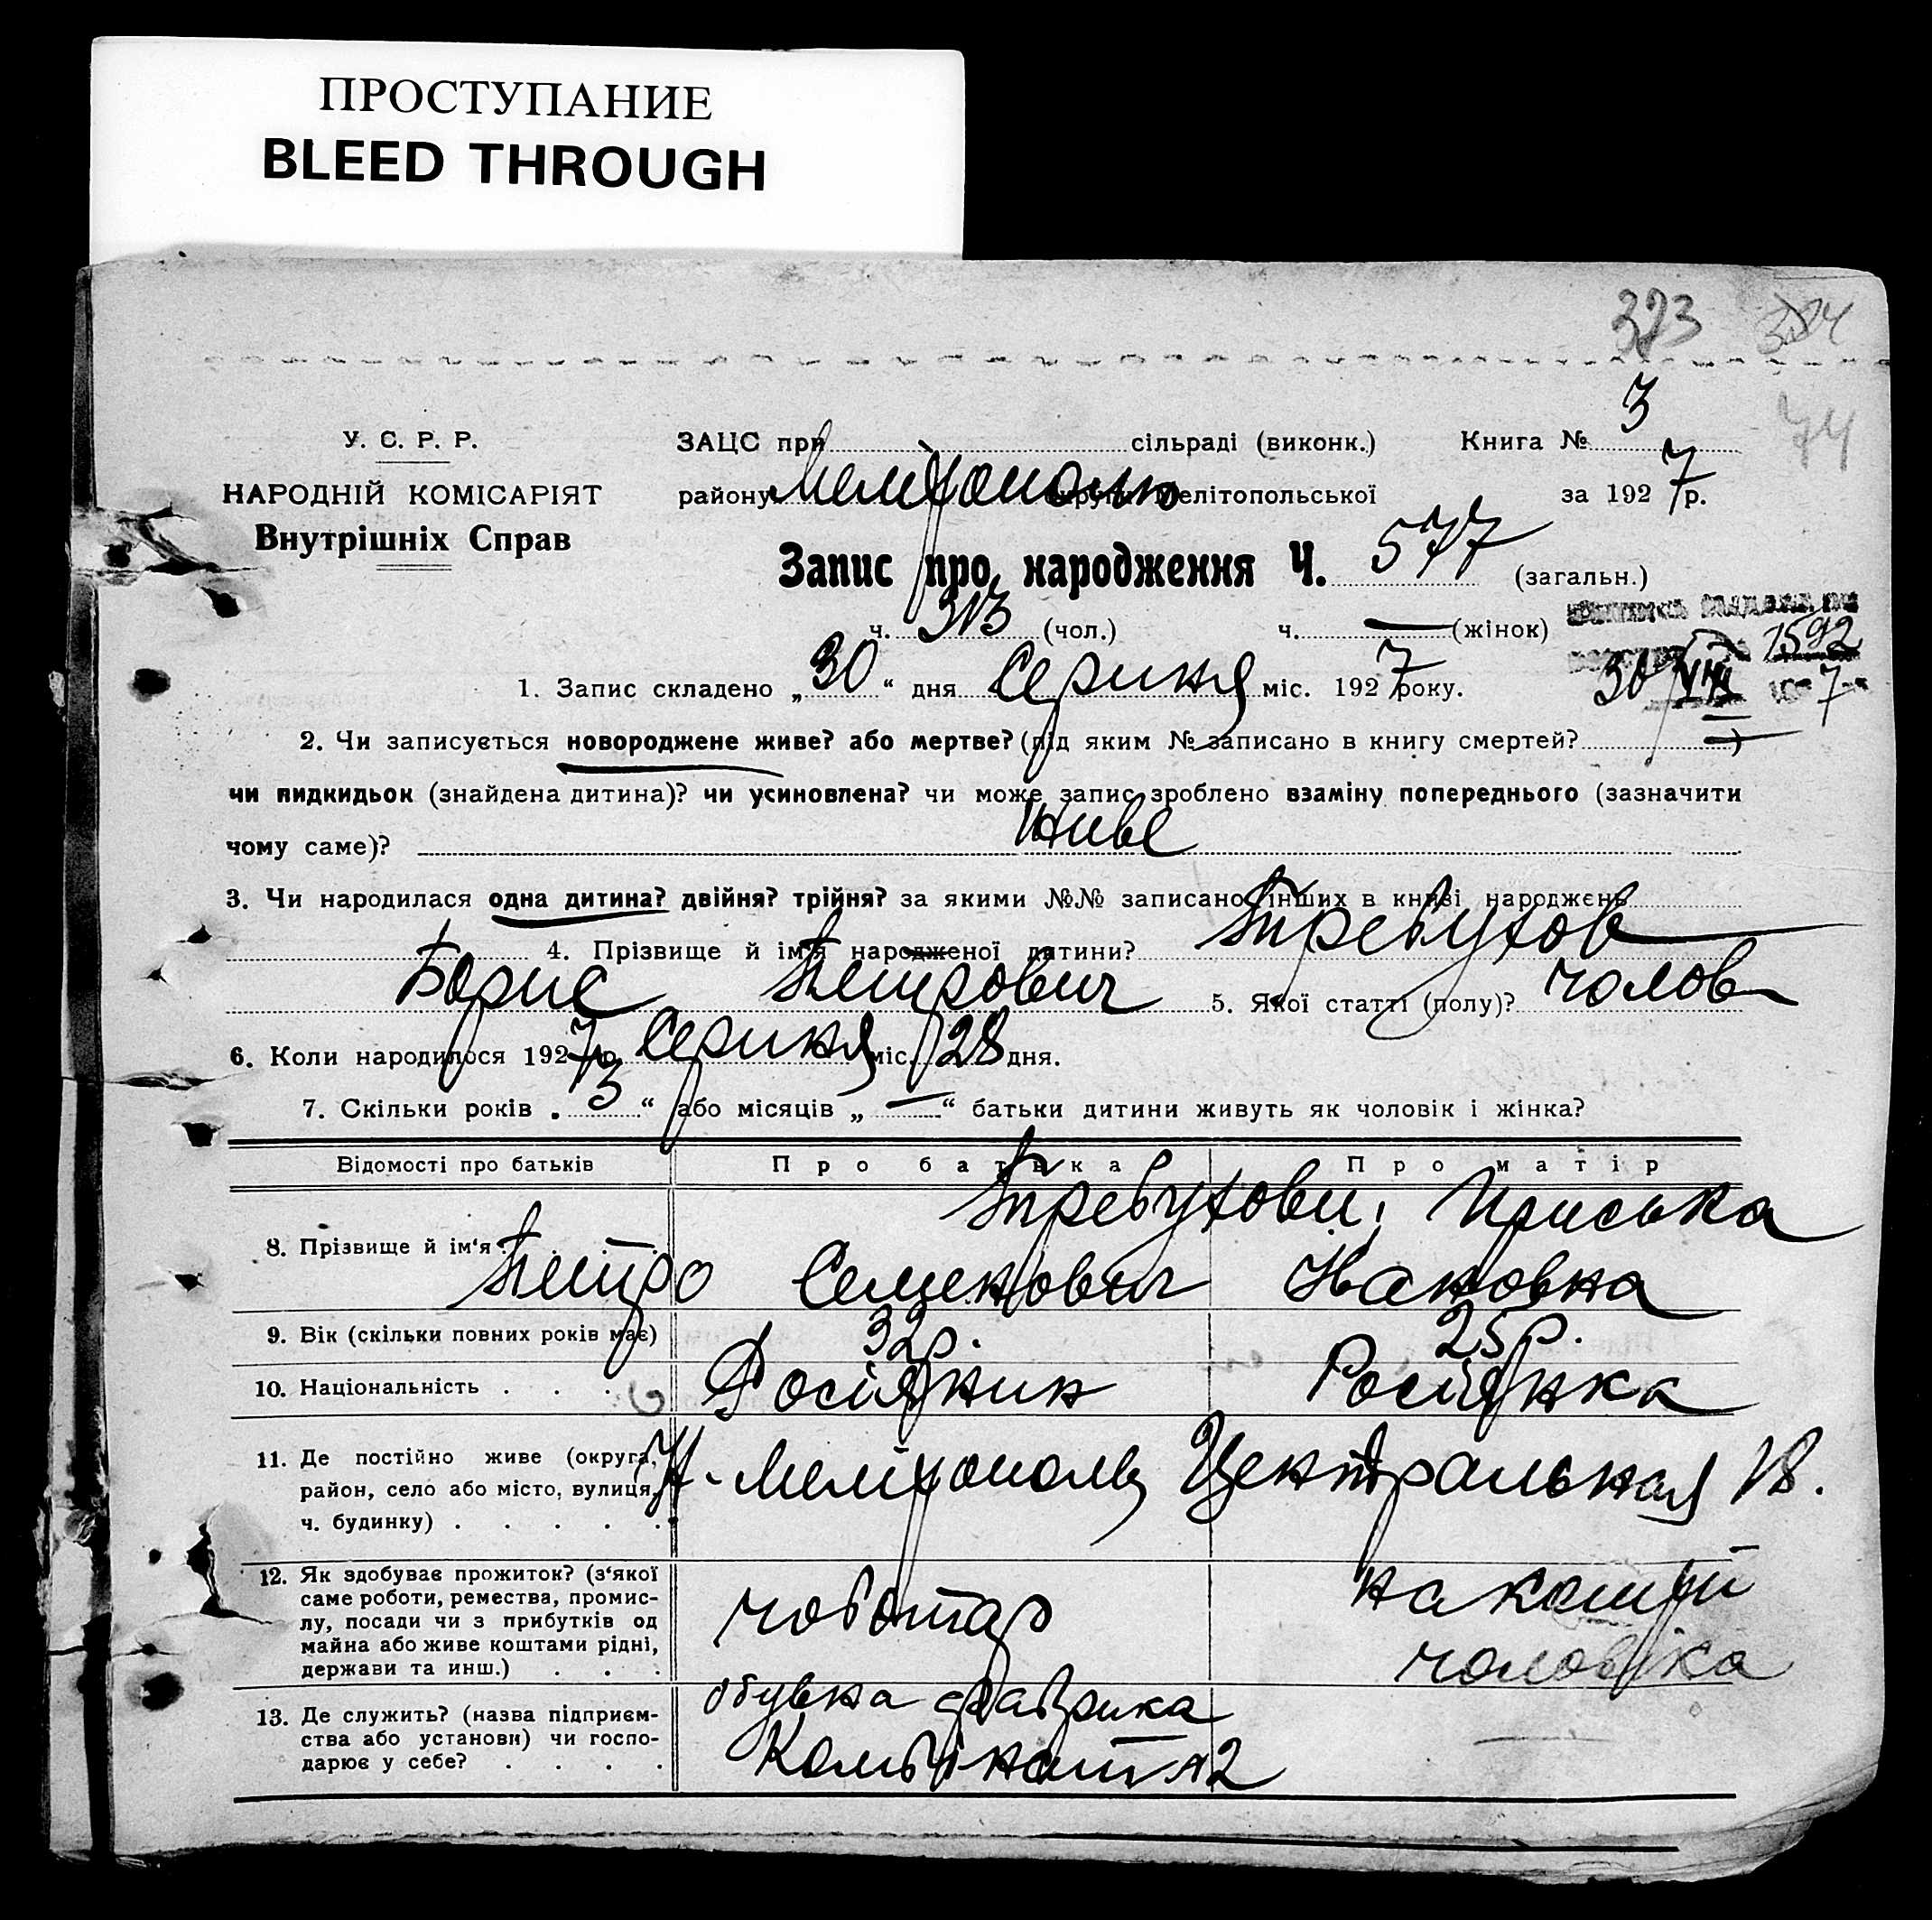 ПРОСТУПАНИЕ
BLEED THROUGH
373 374
3
74
У. С. Р. Р.
ЗАЦС при сільраді (виконк.) Книга №
НАРОДНІЙ КОМІСАРІЯТ
району Мелітополь округи Мелітопольської за 1927 р.
Внутрішніх Справ
Запис про народження Ч. 577 (загальн.)
ч. 313 (чол.) ч. — (жінок)
1592
1. Запис складено „30“ дня Серпня міс. 1927 року.
30/VIII 1927
2. Чи записується новороджене живе? або мертве? (під яким № записано в книгу смертей? —)
чи пидкидьок (знайдена дитина)? чи усиновлена? чи може запис зроблено взаміну попереднього (зазначити
чому саме)? живе
3. Чи народилася одна дитина? двійня? трійня? за якими №№ записано інших в книзі народжень
4. Прізвище й ім'я народженої дитини? Требухов
Борис Петрович 5. Якої статті (полу)? чолов
6. Коли народилося 1927 р. Серпня міс. 28 дня.
7. Скільки років „3“ або місяців „—“ батьки дитини живуть як чоловік і жінка?
Відомості про батьків Про батька Про матір
Требухови, Приська
8. Прізвище й ім'я
Петро Семенович
9. Вік (скільки повних років має) 32р. 25р.
10. Національність . . . Росіянин Росіянка
11. Де постійно живе (округа,
район, село або місто, вулиця,
ч. будинку) . . . . .
Н-Мелітополь Центральная 18.
12. Як здобуває прожиток? (з'якої
саме роботи, ремества, промис-
лу, посади чи з прибутків од
майна або живе коштами рідні,
держави та инш.) . . .
чоботар
на кошти
чоловіка
13. Де служить? (назва підприєм-
ства або установи) чи госпо-
дарює у себе? . . . .
обувна фабрика
Комбінат №2